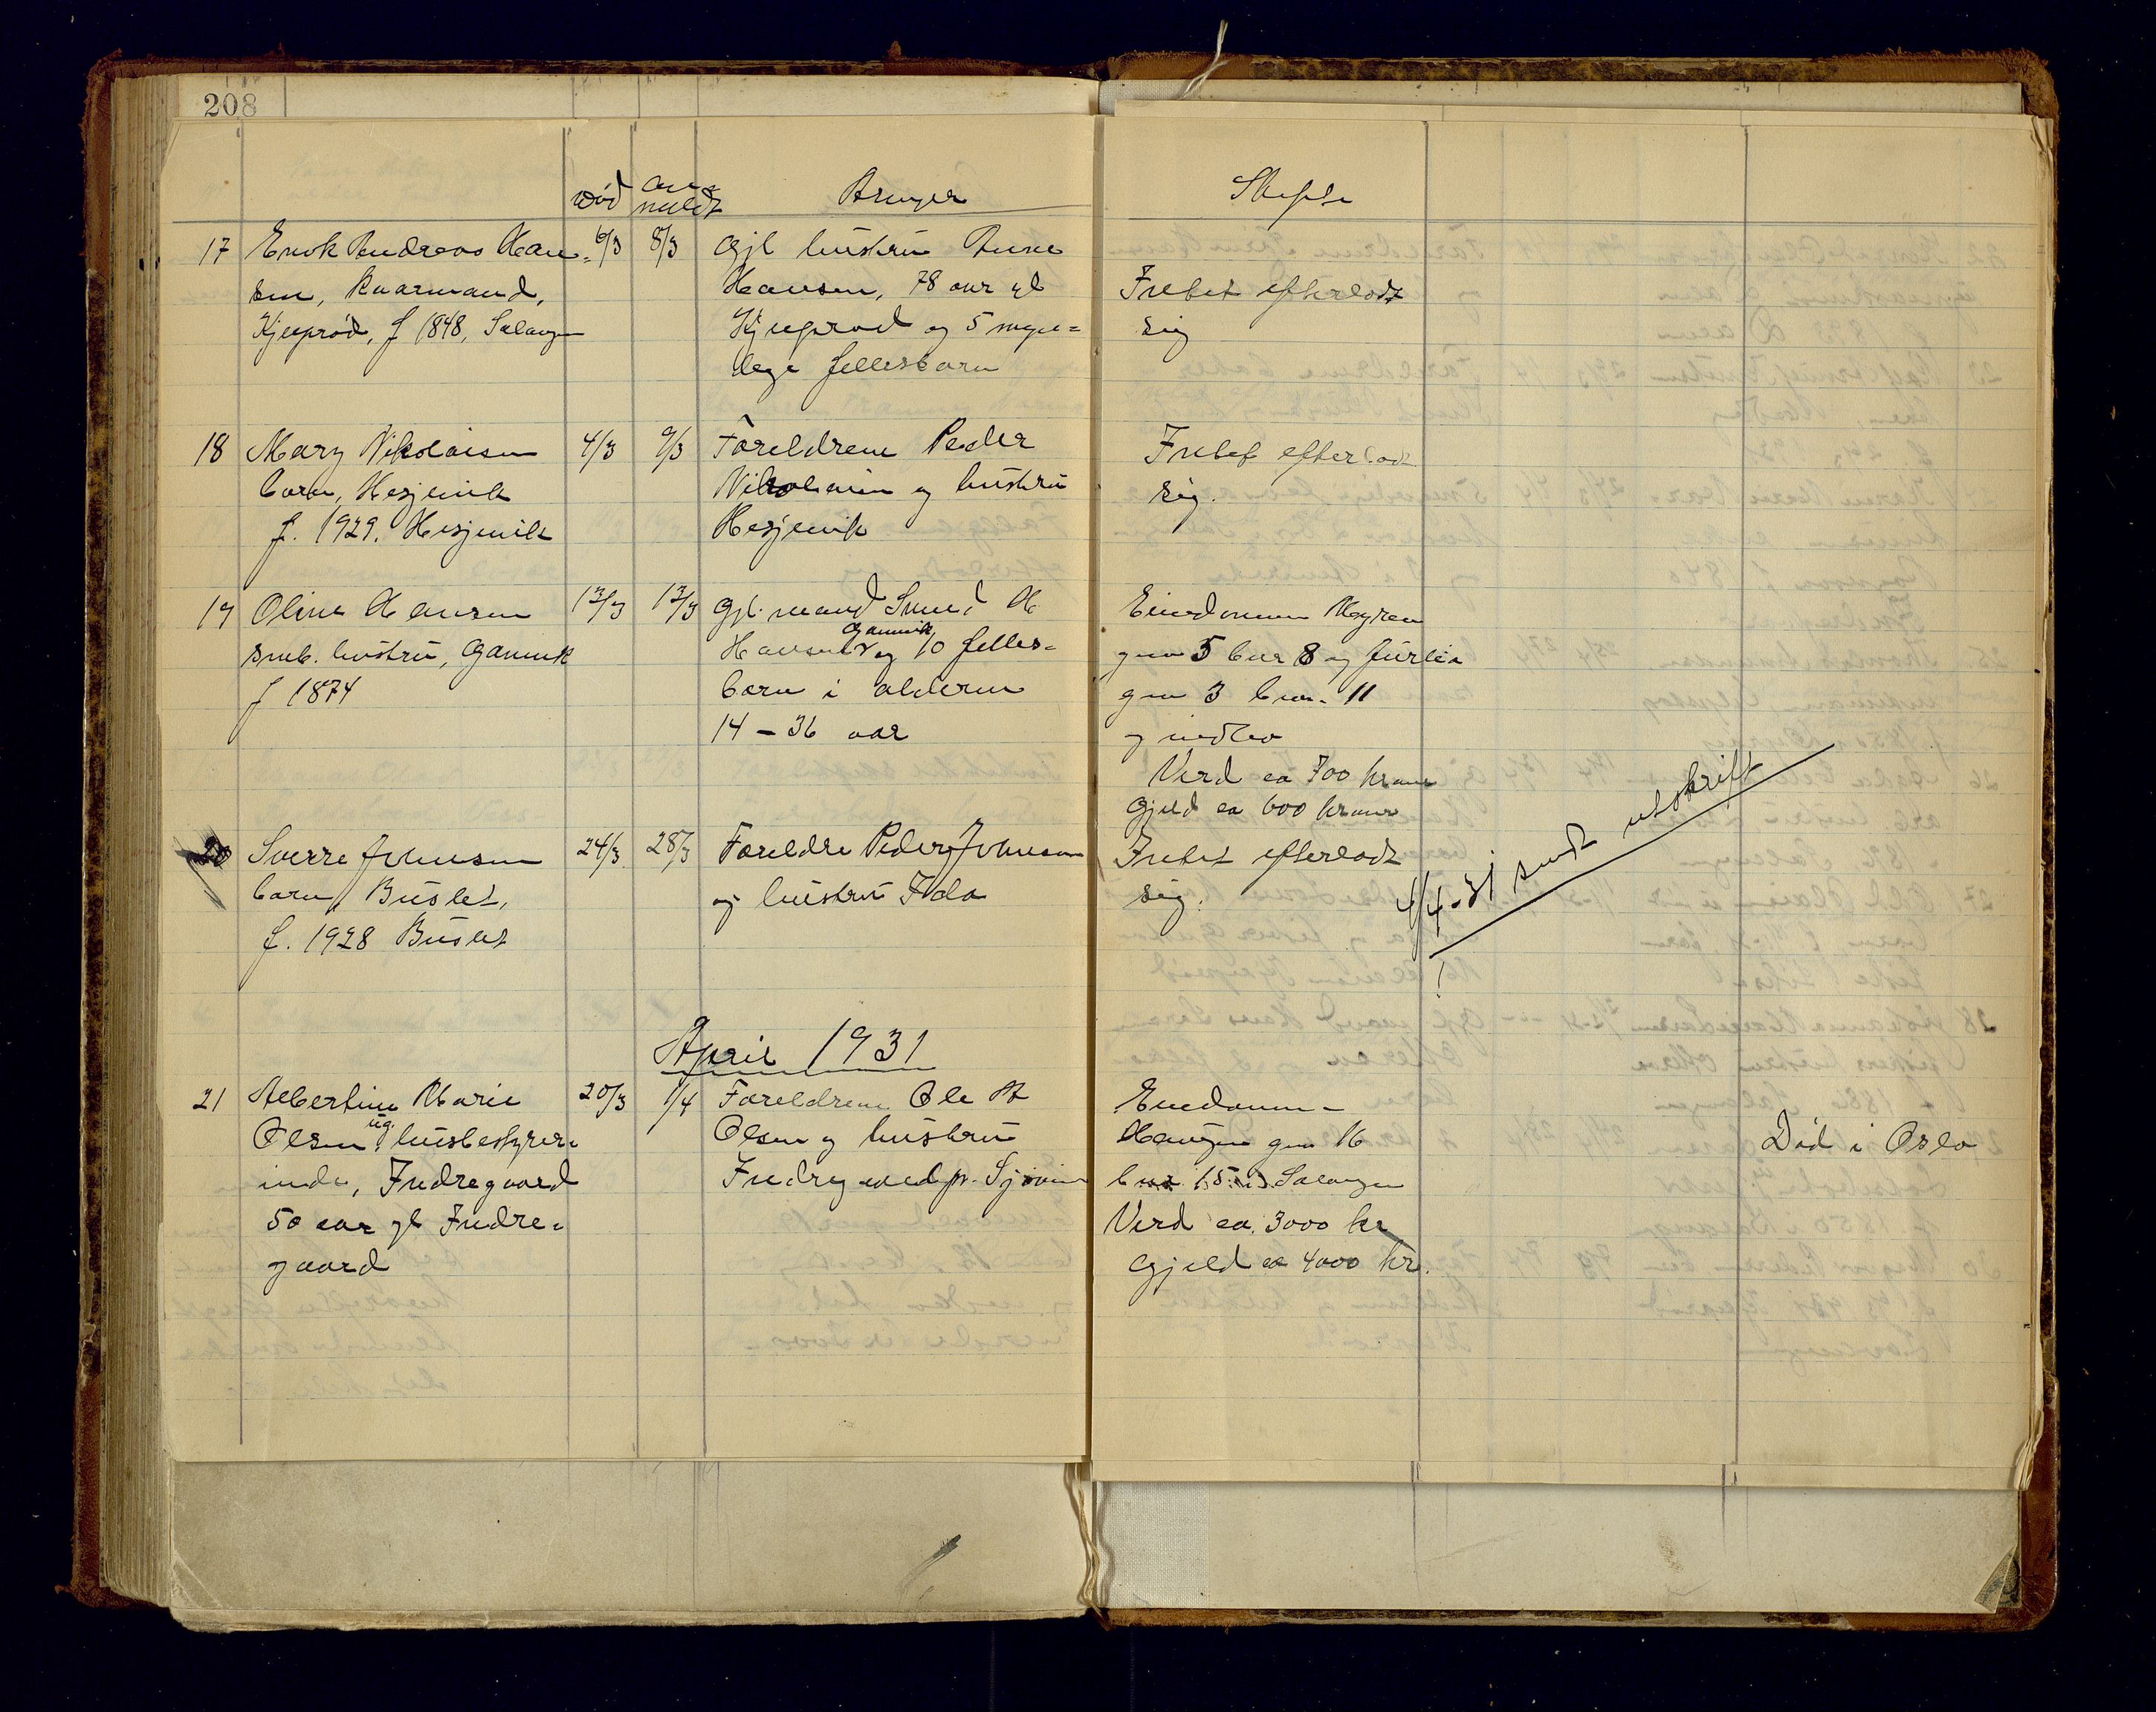 208
Død
an-
meldt
Arvinger
Skifte
17 Enok Andreas Han-
sen, kaarmand,
Kjeiprød, f 1848, Salangen
6/3 8/3
Gjl hustru Anne
Hansen, 78 aar gl
Kjeiprød og 5 myn-
dege fellesbarn
Intet efterlodt
sig
18 Mary Nikolaisen
barn, Hesjevik
f. 1929. Hesjevik
4/3 9/3
Foreldrene Peder
Nikolaisen og hustru
Hesjevik
Intet efterlodt
sig.
19 Oline Hansen
smb. hustru, Gamvik
f 1874
13/3 13/3
Gjl. mand H.
Hansen Gamvik og 10 felles-
barn i alderen
14 - 36 aar
Eiendommen
gnr 5 bnr 8 og Furlia
gnr 3 bnr. 11
og indbo
Verd ca 700 kroner
Gjeld ca 600 kroner
20 Sverre Johnsen
barn, Buslet,
f. 1928 Buslet
24/3 28/3
Foreldre Peder Johnsen
og hustru Ida
Intet efterlodt
sig.
4/4-31 sendt utskrift
April 1931
21 Albertine Marie
Olsen, ug. husbestyrer-
inde, Indregaard
50 aar gl Indre-
gaard
20/3 1/4
Foreldrene Ole A
Olsen og hustru
Indregaard pr. Sjøvein
Eiendommen
Haugen gnr 16
bnr 15 i Salangen
Verd ca. 3000 kr
Gjeld ca 4000 kr.
Død i Oslo